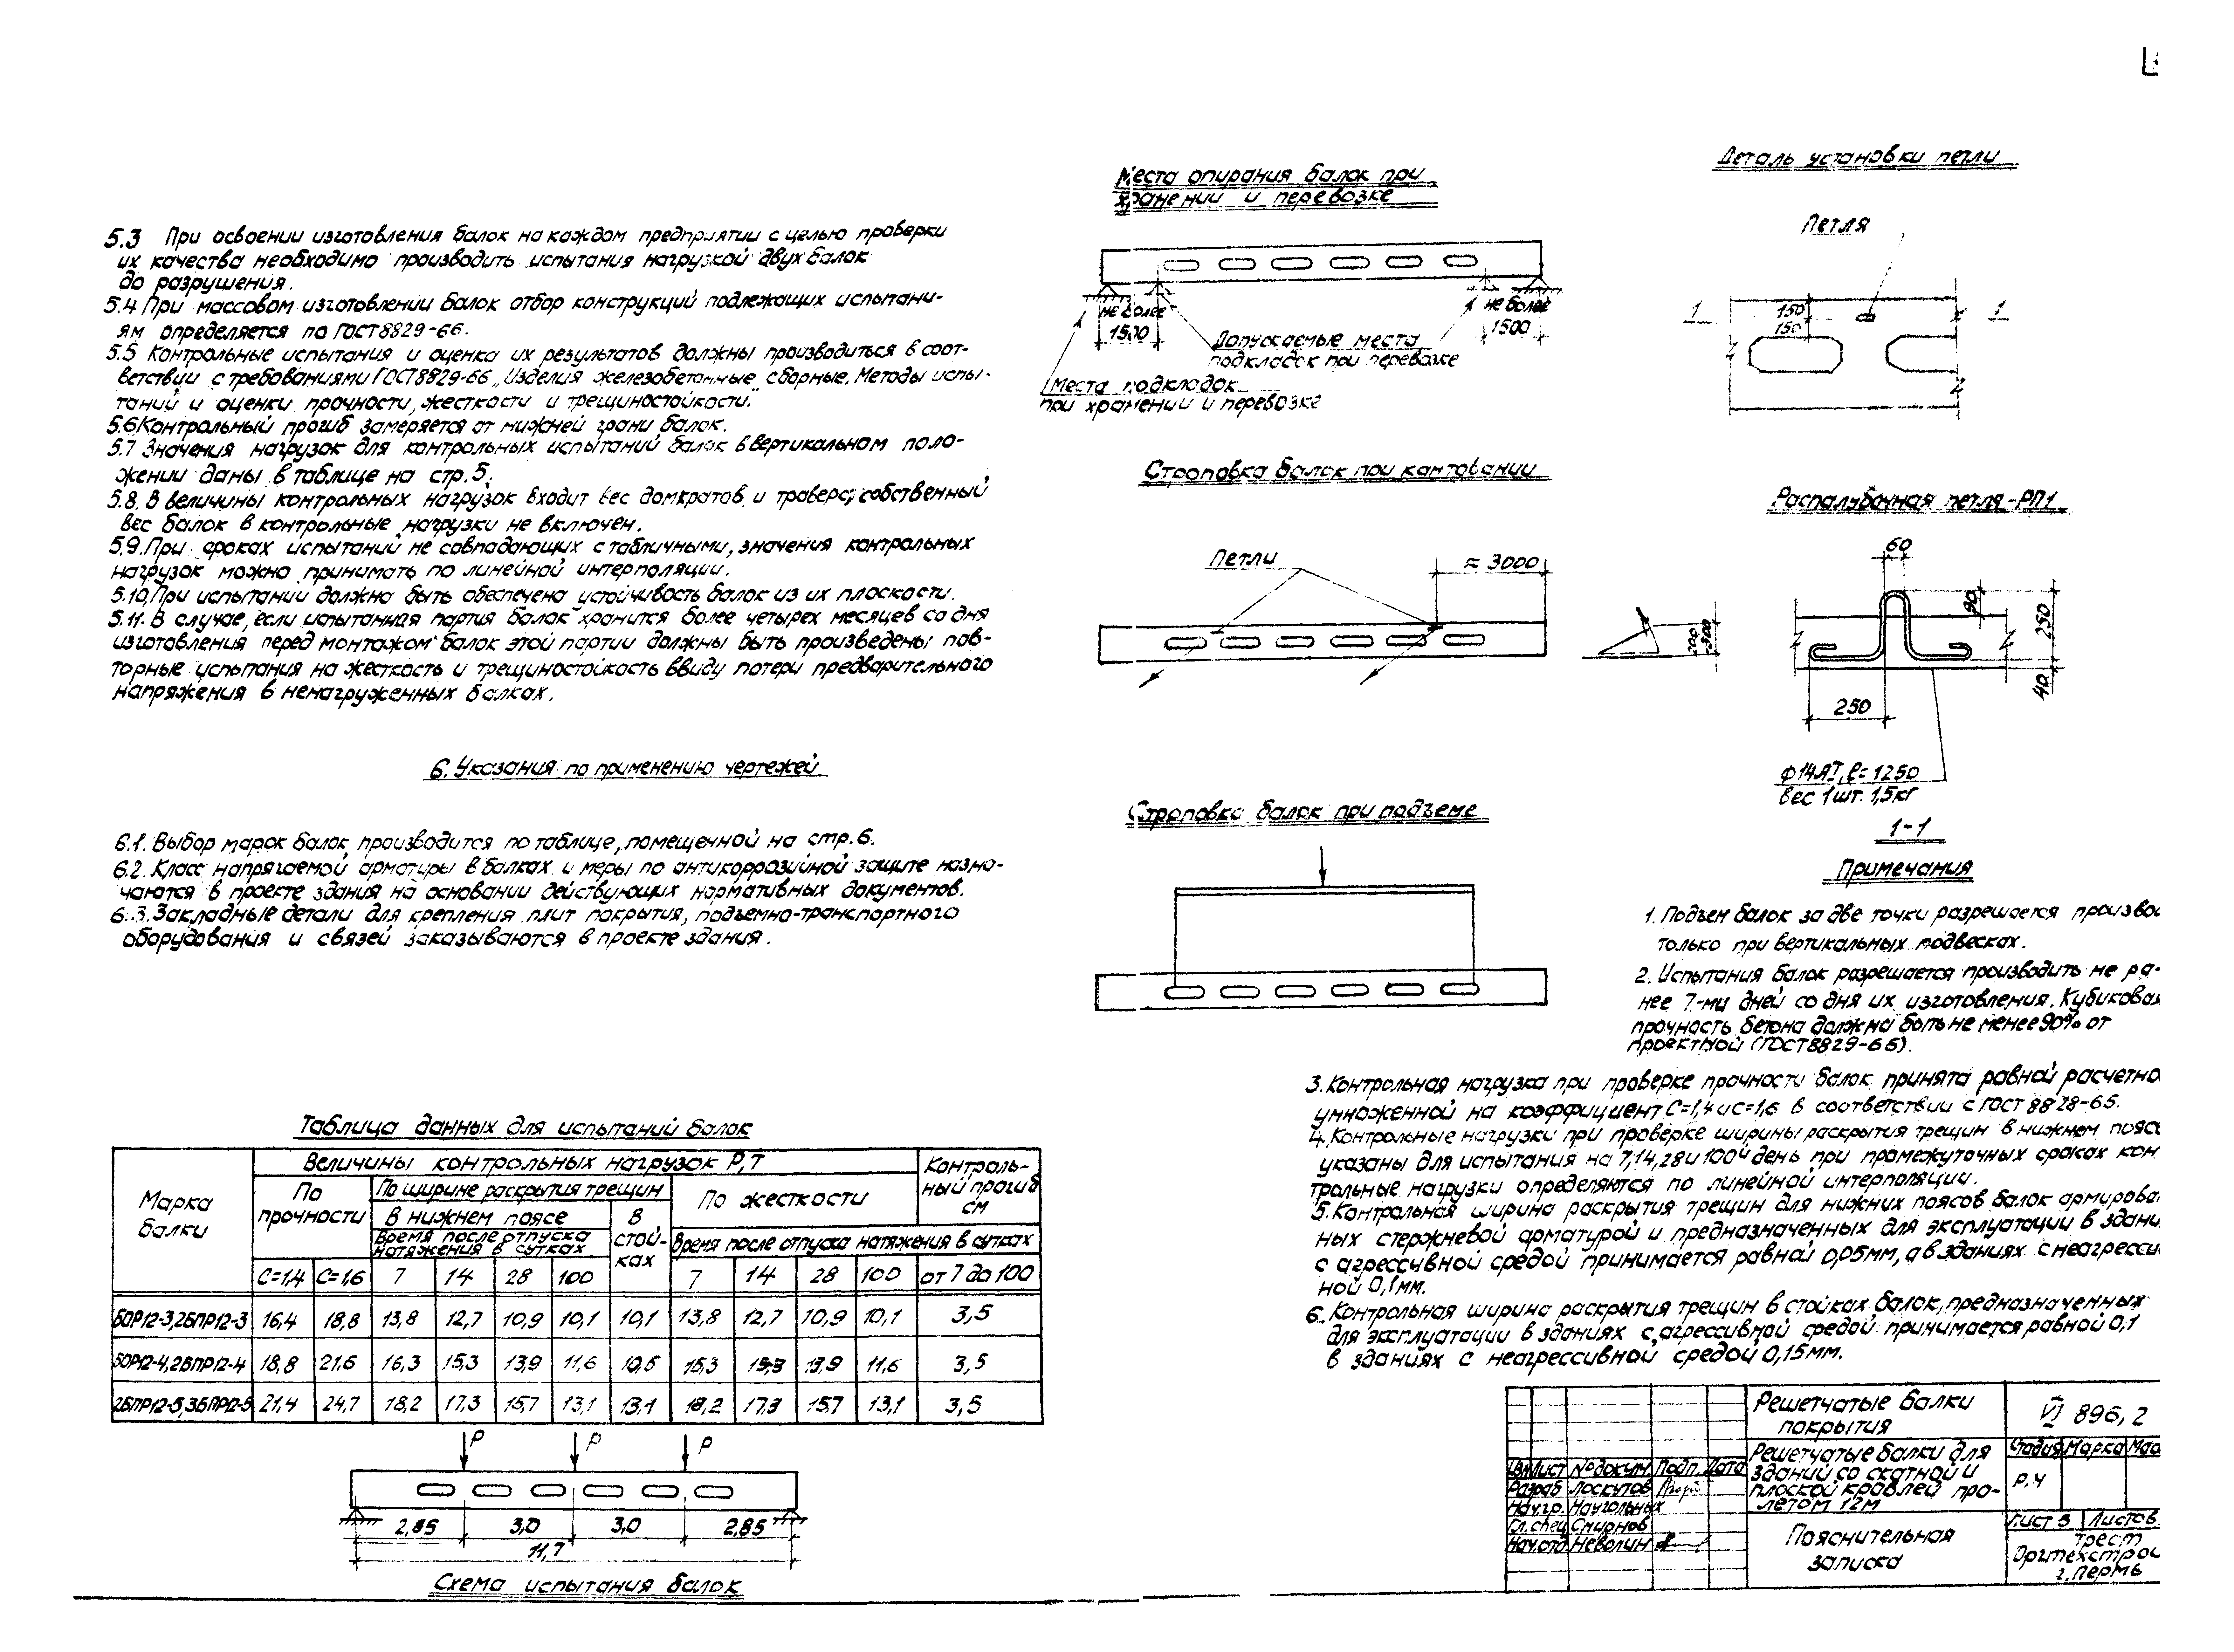 5.3 При освоении изготовления балок на каждом предприятии с целью проверки
их качества необходимо производить испытания нагрузкой двух балок
до разрушения.
5.4 При массовом изготовлении балок отбор конструкций подлежащих испытани-
ям определяется по ГОСТ 8829-66.
5.5 Контрольные испытания и оценка их результатов должны производиться в соот-
ветствии с требованиями ГОСТ 8829-66 „Изделия железобетонные сборные. Методы испы-
таний и оценки прочности, жесткости и трещиностойкости."
5.6 Контрольный прогиб замеряется от нижней грани балок.
5.7 Значения нагрузок для контрольных испытаний балок в вертикальном поло-
жении даны в таблице на стр. 5.
5.8. В величины контрольных нагрузок входит вес домкратов и траверс, собственный
вес балок в контрольные нагрузки не включен.
5.9. При сроках испытаний не совпадающих с табличными, значения контрольных
нагрузок можно принимать по линейной интерполяции.
5.10. При испытании должна быть обеспечена устойчивость балок из их плоскости.
5.11. В случае, если испытанная партия балок хранится более четырех месяцев со дня
изготовления перед монтажом балок этой партии должны быть произведены пов-
торные испытания на жесткость и трещиностойкость ввиду потери предварительного
напряжения в ненагруженных балках.
6. Указания по применению чертежей
6.1. Выбор марок балок производится по таблице, помещенной на стр. 6.
6.2. Класс напрягаемой арматуры в балках и меры по антикоррозийной защите назна-
чаются в проекте здания на основании действующих нормативных документов.
6.3. Закладные детали для крепления плит покрытия, подъемно-транспортного
оборудования и связей заказываются в проекте здания.
Таблица данных для испытаний балок
Марка балки
Величины контрольных нагрузок Р, Т
Контроль-
ный прогиб
см
По прочности
По ширине раскрытия трещин
По жесткости
В нижнем поясе
В стой-
ках
Время после отпуска
натяжения в сутках
Время после отпуска натяжения в сутках
С=1,4 С=1,6 7 14 28 100 7 14 28 100 от 7 до 100
БОР12-3, 2БПР12-3 16,4 18,8 13,8 12,7 10,9 10,1 10,1 13,8 12,7 10,9 10,1 3,5
БОР12-4, 2БПР12-4 18,8 21,6 16,3 15,3 13,9 11,6 15,3 13,9 11,6 3,5
2БПР12-5, 3БПР12-5 21,4 24,7 18,2 17,3 15,7 13,1 13,1 18,2 17,3 15,7 13,1 3,5
Р Р Р
2,85 3,0 3,0 2,85
11,7
Схема испытания балок
Места опирания балок при
хранении и перевозке
не более
1500
не более
1500
Допускаемые места
подкладок при перевозке
Места подкладок
при хранении и перевозке
Строповка балок при кантовании
Петли
≈ 3000
200
300
Строповка балок при подъеме
Деталь установки петли
Петля
1 1
150
150
Распалубочная петля - РП1
60
90
250
40
250
Ф14АI, ℓ=1250
вес 1 шт. 1,5 кг
1-1
Примечания
1. Подъем балок за две точки разрешается произво
только при вертикальных подвесках.
2. Испытания балок разрешается производить не ра-
нее 7-ми дней со дня их изготовления. Кубиковая
прочность бетона должна быть не менее 90% от
проектной (ГОСТ 8829-66).
3. Контрольная нагрузка при проверке прочности балок принята равной расчетно
умноженной на коэффициент С=1,4 и с=1,6 в соответствии с ГОСТ 8828-65.
4. Контрольные нагрузки при проверке ширины раскрытия трещин в нижнем поясе
указаны для испытания на 7, 14, 28 и 100й день при промежуточных сроках кон
трольные нагрузки определяются по линейной интерполяции.
5. Контрольная ширина раскрытия трещин для нижних поясов балок армирова
ных стержневой арматурой и предназначенных для эксплуатации в здани
с агрессивной средой принимается равной 0,05мм, а в зданиях с неагресси
ной 0,1 мм.
6. Контрольная ширина раскрытия трещин в стойках балок, предназначенных
для эксплуатации в зданиях с агрессивной средой принимается равной 0,1
в зданиях с неагрессивной средой 0,15 мм.
Решетчатые балки
покрытия
VI 896, 2
Решетчатые балки для
зданий со скатной и
плоской кровлей про-
летом 12м
Стадия Марка Мас
Р.Ч
Изм Лист № докум Подп. Дата
Разраб Лоскутов
Нач.гр. Наугольных
Гл. спец Смирнов
Нач.отд Неволин
Пояснительная
записка
Лист 5 Листов
Трест
Оргтехстрой
г. Пермь